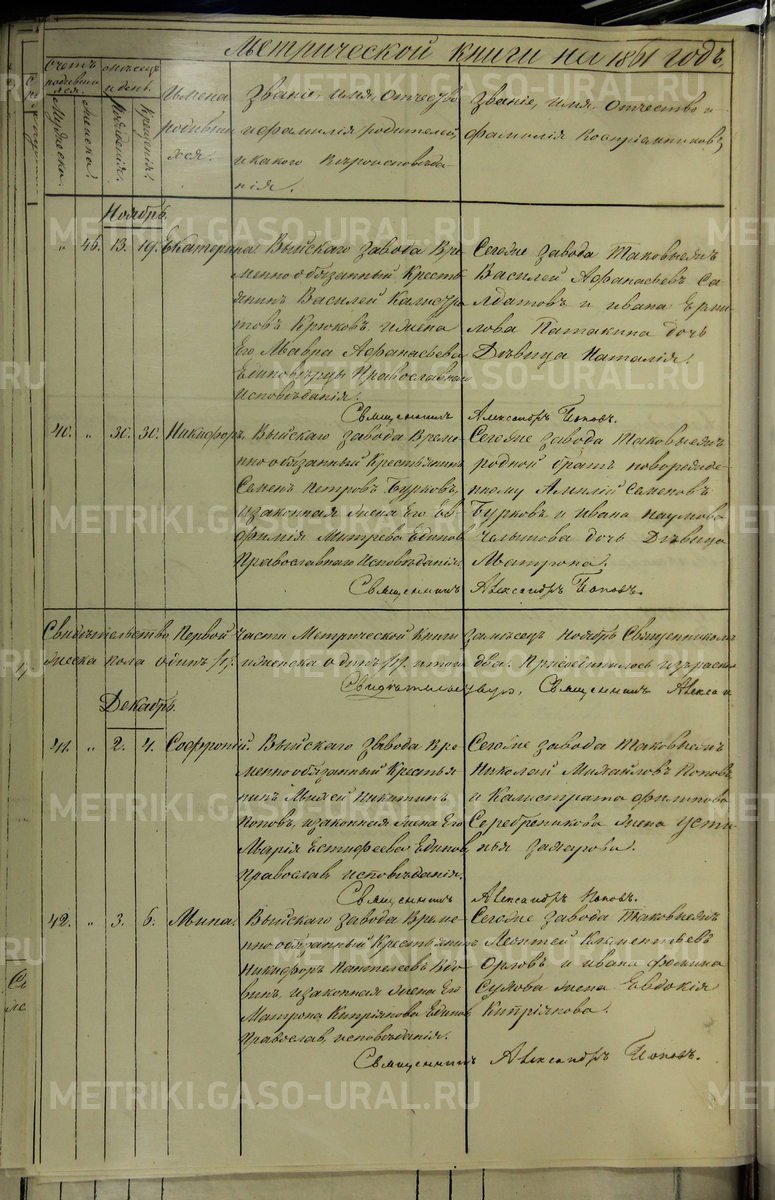 Метрической книги на 1861 годъ
Счетъ родившихся.
Мужеска.
Женска.
Месяцъ и день.
Рождения.
Крещения.
Имена родившихся.
Званіе, имя, отчество
и фамилія родителей,
и какого вероисповеда-
нія.
Званіе, имя, отчество и
фамилія воспріемниковъ
Ноябрь
" 46. 13. 19. Екатерина
Выйскаго завода Вре-
менно обязанный Кресть-
янинъ Василей Калистра-
товъ Крюковъ и жена
Его Мавра Афанасьева
Единоверцы Православнаго
Исповеданія.
Сегоже завода таковыежъ
Василей Афанасьевъ Са-
лдатовъ и ивана Ерми-
лова Патакина дочь
Девица Наталія.
Священникъ Александръ Поповъ.
40. " 30. 30. Никифоръ.
Выйскаго завода Време-
нно обязанный Крестьянинъ
Семенъ Петровъ Бурковъ,
и законная жена Его Ев-
фимія Митрева Единов.
Православнаго Исповеданія.
Сегоже завода таковыежъ
родной братъ новорожде-
нному Семеновъ
Бурковъ и ивана наумова
дочь Девица
Матрона.
Священникъ Александръ Поповъ.
Свидетельство Первой части Метрической Книги замесецъ Ноябрь Священникомъ
жеска пола одинъ /1/. и женска одинъ /1/. итого два.
Свидетельствую, Священникъ Алекса
Декабрь
41. " 2. 4. Софроній.
Выйскаго завода Вре-
менно обязанный Крестья-
нинъ Никитинъ
Поповъ, и законная жена Его
Марія Естифеева Единов.
Православ. исповеданія.
Сегоже завода таковыежъ
Николай Михайловъ Поповъ
и Калистрата филипова
Серебреникова жена Усти-
нья захарова.
Священникъ Александръ Поповъ.
42. " 3. 6. Мина.
Выйскаго завода Време-
нно обязанный Крестьянинъ
Никифоръ Пантелеевъ Вдо-
винъ, и законная жена Его
Матрона Кипріянова Единов.
Православ. исповеданія.
Сегоже завода таковыежъ
Леонтей Климентьевъ
Орловъ и ивана фокина
жена Евдокія
Кипріянова.
Священникъ Александръ Поповъ.
METRIKI.GASO-URAL.RU